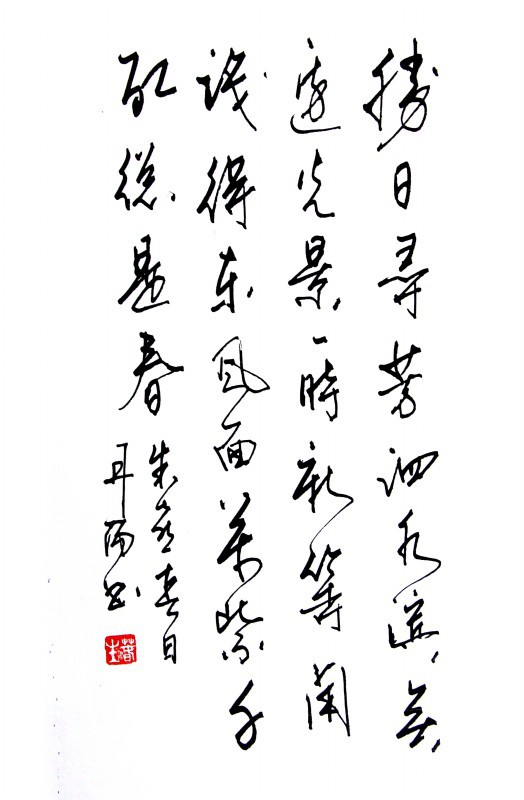 勝日尋芳泗水濱無
邊光景一時新等閑
識得東風面萬紫千
紅總是春
朱熹春日
丹陽書